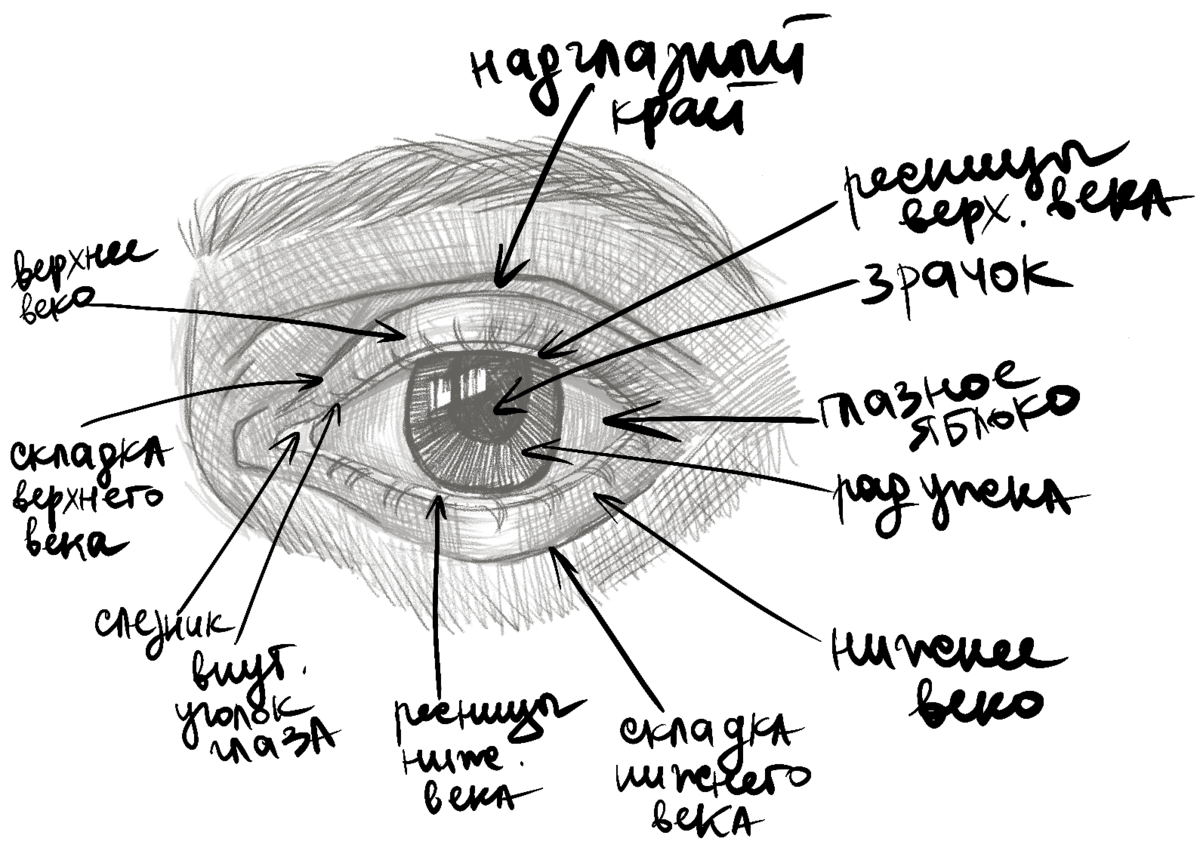 надглазный
край
ресницы
верх. века
зрачок
верхнее
веко
глазное
яблоко
складка
верхнего
века
радужка
слезник
внут.
уголок
глаза
нижнее
веко
ресницы
ниж.
века
складка
нижнего
века